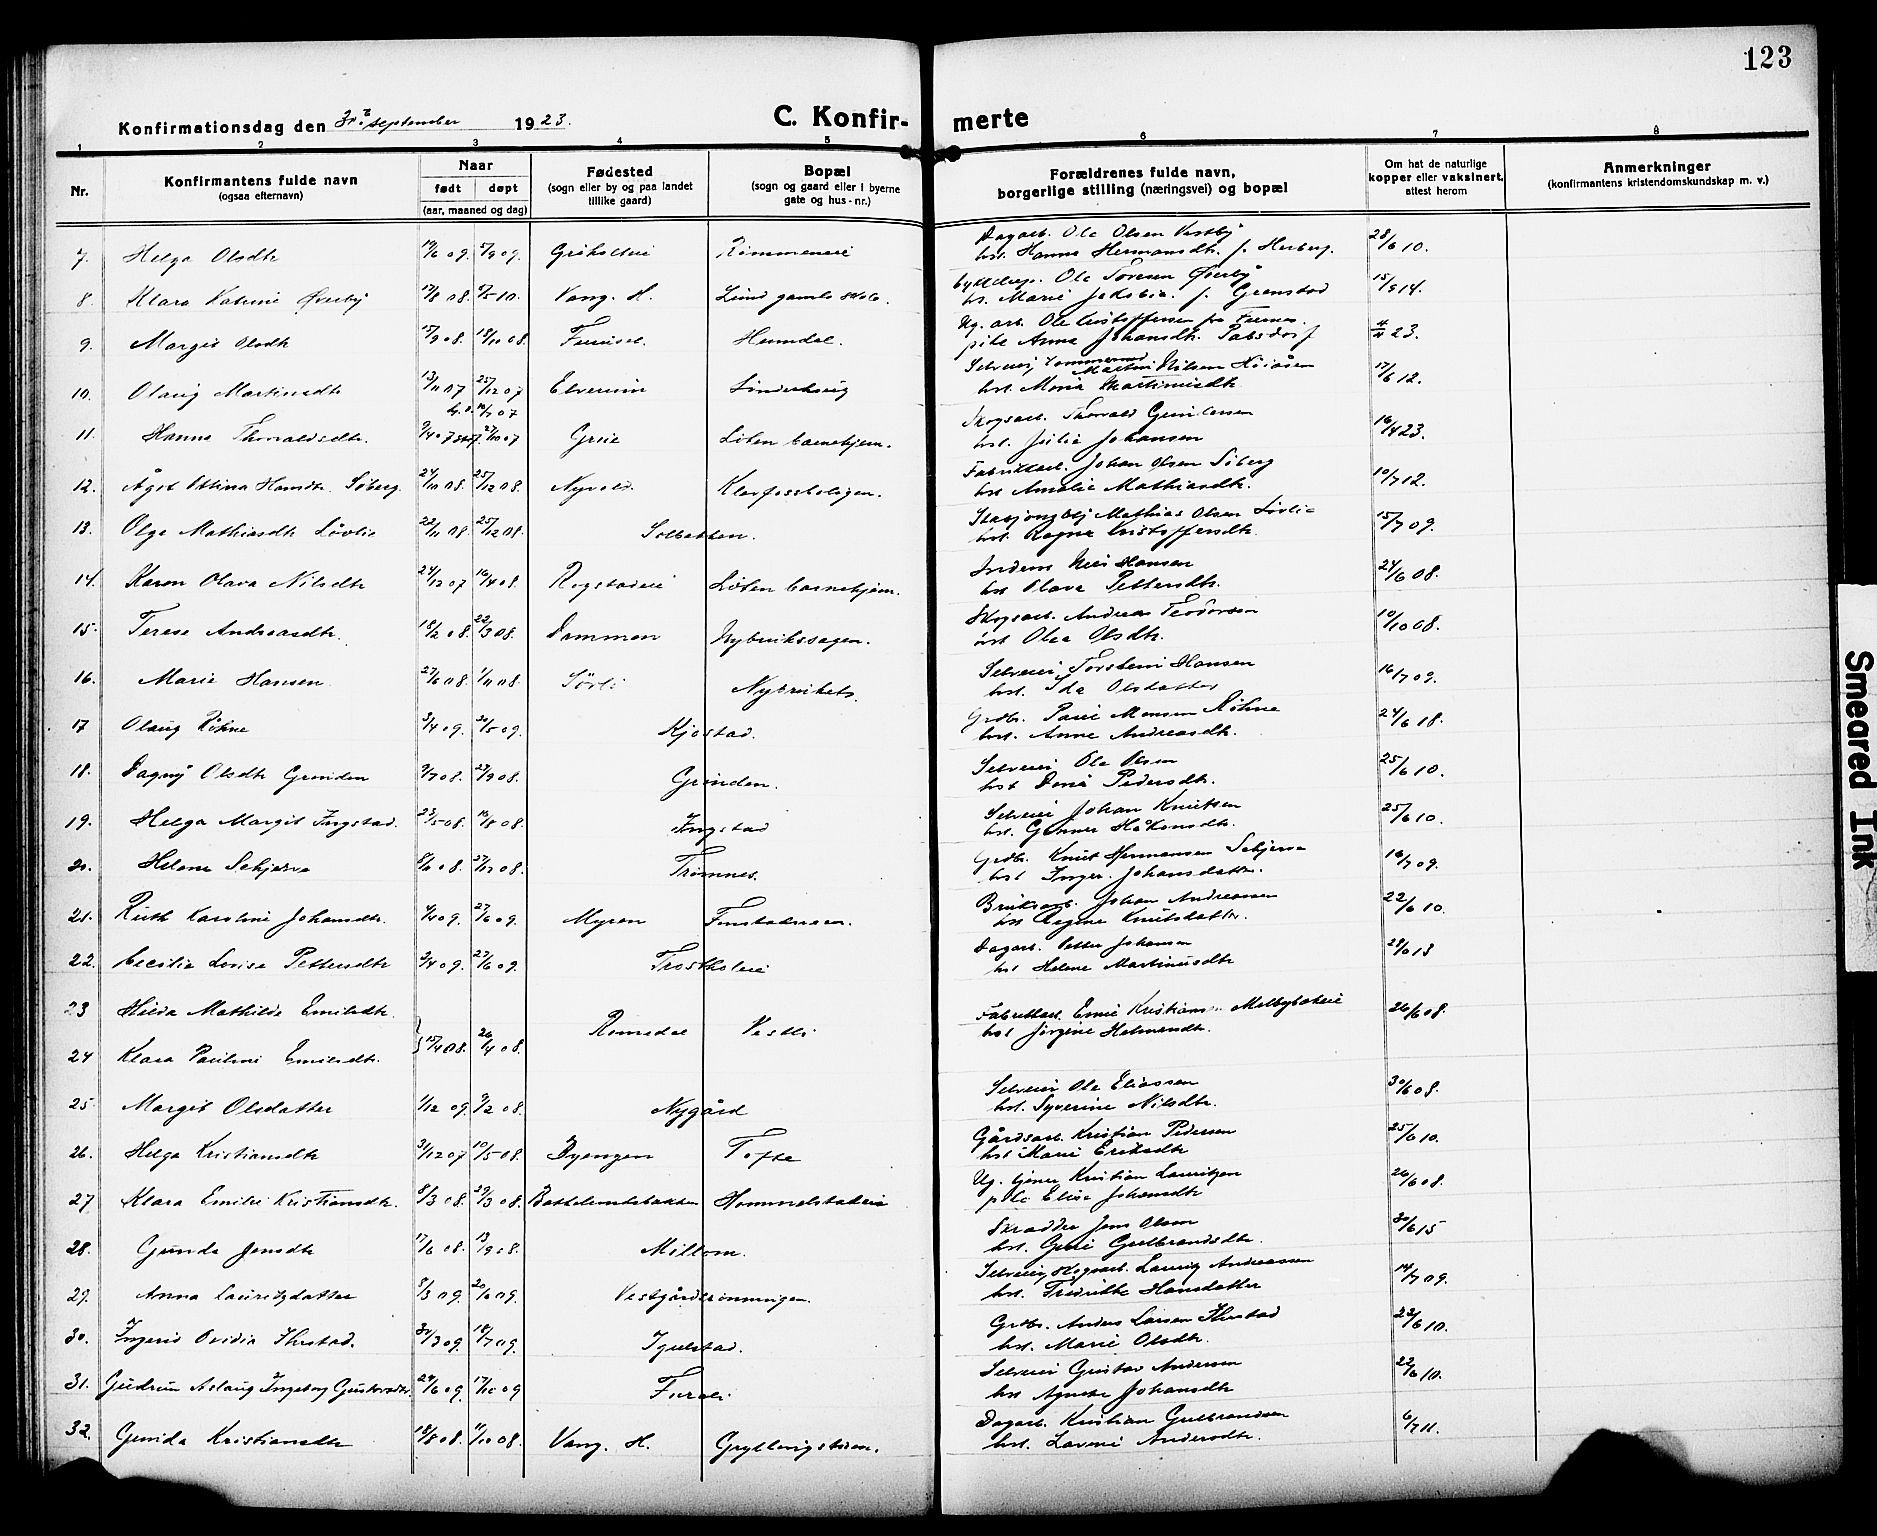 123
Konfirmationsdag den 30te september 1923.
C. Konfir- merte
1 2 3 4 5 6 7 8
Nr.
Konfirmantens fulde navn
(ogsaa efternavn)
Naar
født døpt
(aar, maaned og dag)
Fødested
(sogn eller by og paa landet
tillike gaard)
Bopæl
(sogn og gaard eller i byerne
gate og hus-nr.)
Forældrenes fulde navn,
borgerlige stilling (næringsvei) og bopæl
Om hat de naturlige
kopper eller vaksinert,
attest herom
Anmerkninger
(konfirmantens kristendomskundskap m. v.)
7. Helga Olsdtr 09. 09.
Dagarb. Ole Olsen Vestby
hst. Hanna Hermansdtr. f. Herberg. 28/6 10.
8. Klara Katrine Øverby 08. 10. Vang. H. Lund gamle skole.
Ole Toresen Øverby
Marie Jakobia f. Grønstad 15/9 14.
9. Margit Olsdtr 15/9 08. 18/10 08. Furusel. Heimdal.
Ug. arb. Ole Kristoffersen fra Furnes.
pike Anna Johansdtr. Pabsdorf 23.
10. Olaug Martinsdtr 13/11 07 25/12 07 Elverum
Selveier, tømmermand Martin Nilsen
hst. Maria Martinusdtr 17/6 12.
11. Hanna Thorvaldsdtr. 07 07 Løten barnehjem.
Skogsarb. Thorvald Gundersen
hst. Julie Johansen 16/4 23.
12. Ågot Otina Hansdtr. Søberg. 24/10 08. 25/12 08. Nyvold. Klevfosboligen.
Fabrikkarb. Johan Olsen Søberg
hst Amalie Mathiasdtr. 10/7 12.
13. Olga Mathiasdtr Løvlie 22/11 08. 25/12 08. Solbakken.
Mathias Olsen Løvlie
hst. Ragna Kristoffersdtr. 15/7 09.
14. Karen Olava Nilsdtr 24/12 07 16/4 08. Rogstadeie Løten barnehjem.
Nils Hansen
hst Olava Pettersdtr. 24/6 08.
15. Terese Andreasdtr. 18/2 08. 22/3 08. Dammen Nybruksagen.
Skogsarb. Andreas Teodorsen
hst Olea Olsdtr. 10/10 08.
16. Marie Hansen 27/6 08. 1/11 08. Sørli
Selveier Torstein Hansen
hst. Ida Olsdatter 16/7 09.
17 Olaug Røhne 3/4 09. 30/5 09. Kjøstad.
Grdbr. Paul Monsen Røhne
hst. Anne Andreasdtr. 24/6 18.
18. Dagny Olsdtr Grinden 08. 27/9 08. Grinden.
Selveier Ole Olsen
hst Pedersdtr. 25/6 10.
19. Helga Margit Ingstad. 23/5 08. 16/8 08. Ingstad
Selveier Johan Knutsen
hst. Gunner Håkensdtr. 25/6 10.
20. Helene 08. 08. Trømnes.
Grdbr. Knut Hermansen
hst Inger Johansdatter. 16/7 09.
21. Ruth Karoline Johansdtr. 09. 27/6 09. Myren
Bruksarb. Johan Andreassen
hst Regine Knutsdatter. 22/6 10.
22. Cecilie Lovise Pettersdtr 3/4 09. 27/6 09. Trostholeie
Dagarb. Petter Johansen
hst Helene Martinusdtr 13
23 Hilda Mathilde Emilsdtr.
24 Klara Pauline Emilsdtr. 15/4 08. 26/4 08. Romedal Vestli
Fabrikkarb. Emil Kristiansen Melbybakeie
hst Jørgine Helmersdtr. 26/6 08.
25 Margit Olsdatter 1/12 09. 9/2 08. Nygård
Selveier Ole Eliassen
hst. Syverine Nilsdtr. 30/6 08.
26. Helga Kristiansdtr 31/12 07 10/5 08. Byengen Tofte
Gårdsarb. Kristian Pedersen
hst Marie Eriksdtr 25/6 10.
27. Klara Emilie Kristiansdtr. 8/3 08. 29/3 08. Hommelstadeie
Ug. tjener Kristian Lauritzen
pike Elise Johansdtr 26/6 08.
28. Gunda Jensdtr 17/6 08. 13/9 08. Millom.
Skrædder Jens Olsen
hst. Guri Gulbrandsdtr. 30/6 15
29. Anna Lauritzdatter 8/3 09. 20/6 09. Vestgårdsrønningen.
Selveier, skogsarb. Lauritz Andreassen
hst. Fredrikke Hansdatter 14/7 09.
30. Ingerid Ovidia Ihrstad. 30/3 09. 18/7 09. Igulstad.
Grdbr. Anders Larsen Ihrstad
hst. Marie Olsdtr. 10.
31. Gudrun Aslaug Ingeborg Gustavsdtr 24/6 09. 17/10 09 Furuli
Selveier Gustav Andersen
hst Agnete Johansdtr 22/6 10.
32. Gunda Kristiansdtr 19/8 08. 11/10 08. Vang. H.
Dagarb. Kristian Gulbrandsen
hst. Andersdtr. 6/7 11.
Smeared Ink